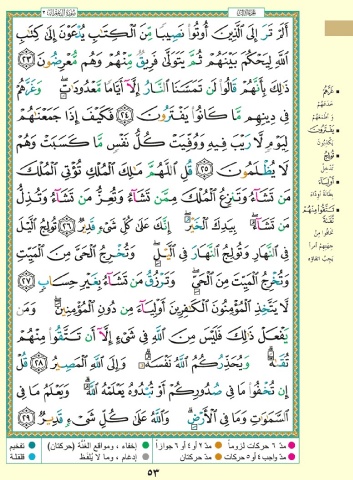 أَلَمْ تَرَ إِلَى ٱلَّذِينَ أُوتُوا۟ نَصِيبًا مِّنَ ٱلْكِتَـٰبِ يُدْعَوْنَ إِلَىٰ كِتَـٰبِ
ٱللَّهِ لِيَحْكُمَ بَيْنَهُمْ ثُمَّ يَتَوَلَّىٰ فَرِيقٌ مِّنْهُمْ وَهُم مُّعْرِضُونَ ٢٣
ذَٰلِكَ بِأَنَّهُمْ قَالُوا۟ لَن تَمَسَّنَا ٱلنَّارُ إِلَّآ أَيَّامًا مَّعْدُودَٰتٍ ۖ وَغَرَّهُمْ
فِى دِينِهِم مَّا كَانُوا۟ يَفْتَرُونَ ٢٤ فَكَيْفَ إِذَا جَمَعْنَـٰهُمْ
لِيَوْمٍ لَّا رَيْبَ فِيهِ وَوُفِّيَتْ كُلُّ نَفْسٍ مَّا كَسَبَتْ وَهُمْ
لَا يُظْلَمُونَ ٢٥ قُلِ ٱللَّهُمَّ مَـٰلِكَ ٱلْمُلْكِ تُؤْتِى ٱلْمُلْكَ
مَن تَشَآءُ وَتَنزِعُ ٱلْمُلْكَ مِمَّن تَشَآءُ وَتُعِزُّ مَن تَشَآءُ وَتُذِلُّ
مَن تَشَآءُ ۖ بِيَدِكَ ٱلْخَيْرُ ۖ إِنَّكَ عَلَىٰ كُلِّ شَىْءٍ قَدِيرٌ ٢٦ تُولِجُ ٱلَّيْلَ
فِى ٱلنَّهَارِ وَتُولِجُ ٱلنَّهَارَ فِى ٱلَّيْلِ ۖ وَتُخْرِجُ ٱلْحَىَّ مِنَ ٱلْمَيِّتِ
وَتُخْرِجُ ٱلْمَيِّتَ مِنَ ٱلْحَىِّ ۖ وَتَرْزُقُ مَن تَشَآءُ بِغَيْرِ حِسَابٍ ٢٧
لَّا يَتَّخِذِ ٱلْمُؤْمِنُونَ ٱلْكَـٰفِرِينَ أَوْلِيَآءَ مِن دُونِ ٱلْمُؤْمِنِينَ ۖ وَمَن
يَفْعَلْ ذَٰلِكَ فَلَيْسَ مِنَ ٱللَّهِ فِى شَىْءٍ إِلَّآ أَن تَتَّقُوا۟ مِنْهُمْ
تُقَىٰةً ۗ وَيُحَذِّرُكُمُ ٱللَّهُ نَفْسَهُۥ ۗ وَإِلَى ٱللَّهِ ٱلْمَصِيرُ ٢٨ قُلْ
إِن تُخْفُوا۟ مَا فِى صُدُورِكُمْ أَوْ تُبْدُوهُ يَعْلَمْهُ ٱللَّهُ ۗ وَيَعْلَمُ مَا فِى
ٱلسَّمَـٰوَٰتِ وَمَا فِى ٱلْأَرْضِ ۗ وَٱللَّهُ عَلَىٰ كُلِّ شَىْءٍ قَدِيرٌ ٢٩
غَرَّهُمْ
خدعهم
يَفْتَرُونَ
يكذبون
تُولِجُ
تُدخل
أَوْلِيَآءَ
تَتَّقُوا۟ مِنْهُمْ تُقَىٰةً
تخافوا من
جهتهم أمراً
يجب اتقاؤه
مدّ ٦ حركات لزوماً
مدّ ٢ أو ٤ أو ٦ جوازاً
إخفاء، ومواقع الغنّة (حركتان)
تفخيم
مدّ واجب ٤ أو ٥ حركات
مدّ حركتان
إدغام، وما لا يُلفظ
قلقلة
٥٣